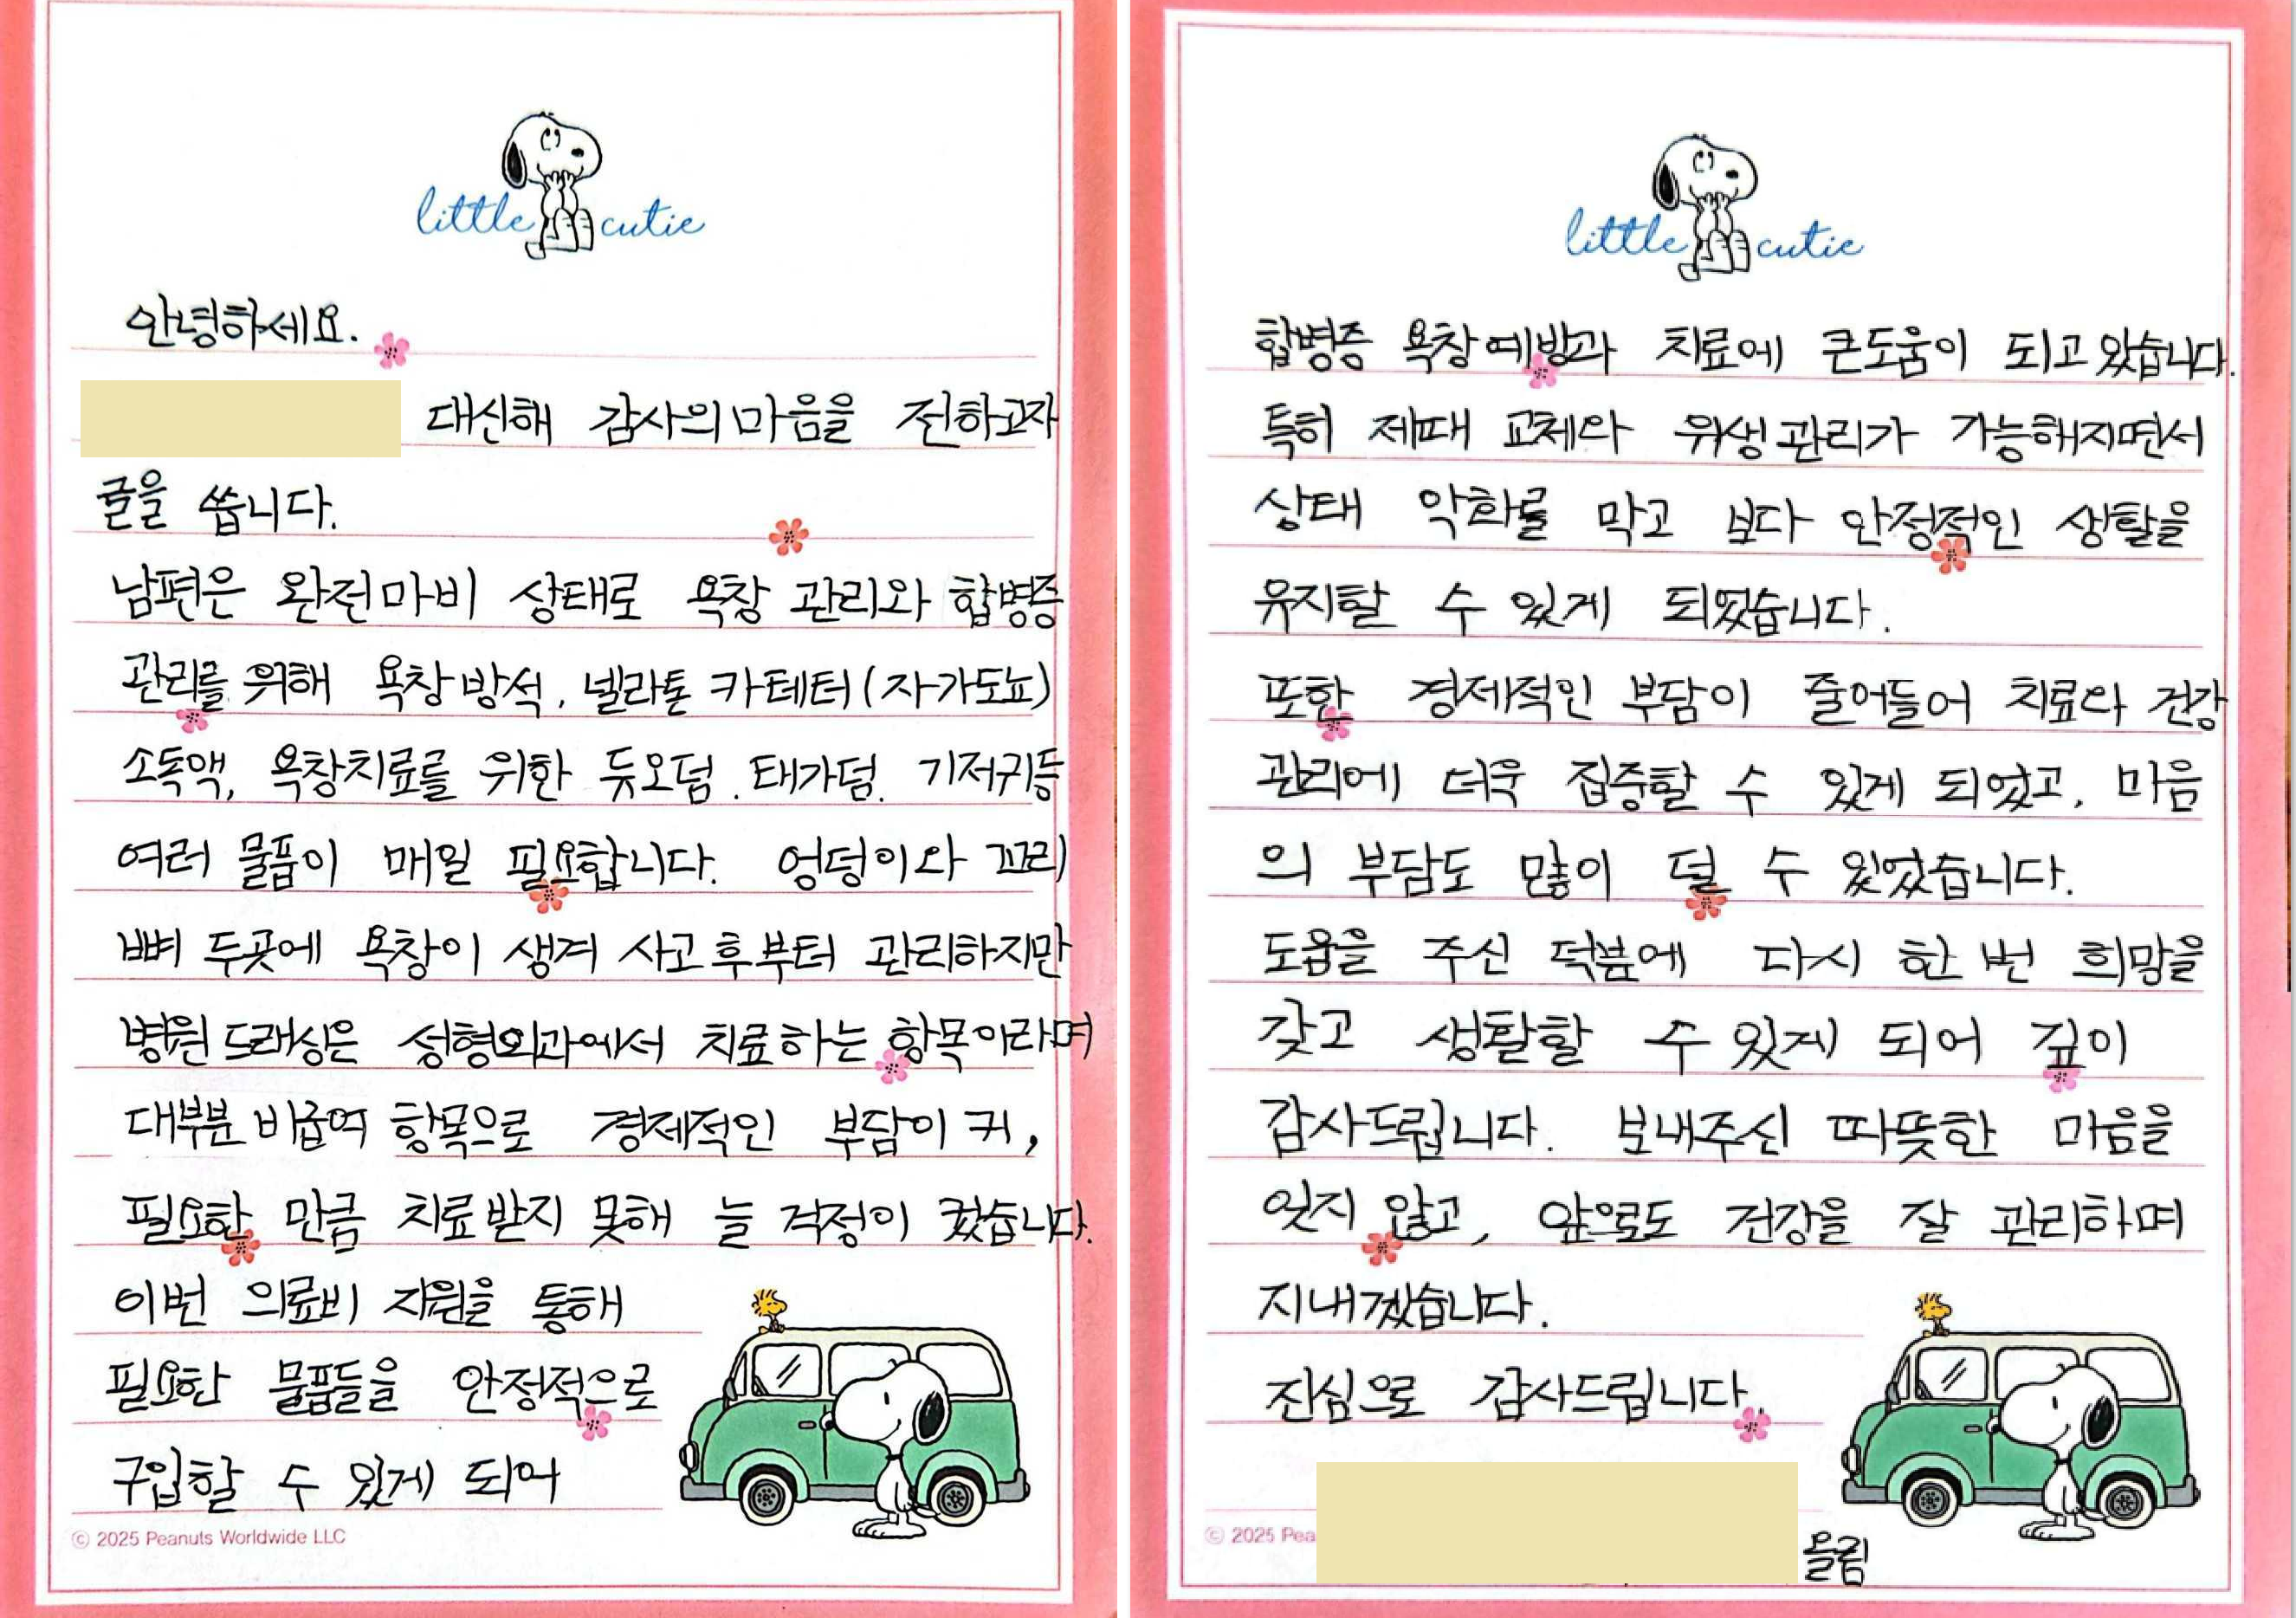 little cutie
안녕하세요.
대신해 감사의 마음을 전하고자
글을 씁니다.
남편은 완전마비 상태로 욕창 관리와 합병증
관리를 위해 욕창방석, 넬라톤 카테테터(자가도뇨)
소독액, 욕창치료를 위한 듀오덤. 태가덤. 기저귀등
여러 물품이 매일 필요합니다. 엉덩이와 꼬리
뼈 두곳에 욕창이 생겨 사고후부터 관리하지만
병원 드래싱은 성형외과에서 치료하는 항목이라며
대부분 비급여 항목으로 경제적인 부담이 커,
필요한 만큼 치료받지 못해 늘 걱정이 컸습니다.
이번 의료비 지원을 통해
필요한 물품들을 안정적으로
구입할 수 있게 되어
© 2025 Peanuts Worldwide LLC
little cutie
합병증 욕창예방과 치료에 큰도움이 되고있습니다.
특히 제때 교체와 위생관리가 가능해지면서
상태 악화를 막고 보다 안정적인 생활을
유지할 수 있게 되었습니다.
또한 경제적인 부담이 줄어들어 치료와 건강
관리에 더욱 집중할 수 있게 되었고, 마음
의 부담도 많이 덜 수 있었습니다.
도움을 주신 덕분에 다시 한 번 희망을
갖고 생활할 수 있게 되어 깊이
감사드립니다. 보내주신 따뜻한 마음을
잊지 않고, 앞으로도 건강을 잘 관리하며
지내겠습니다.
진심으로 감사드립니다.
© 2025 Pea
올림